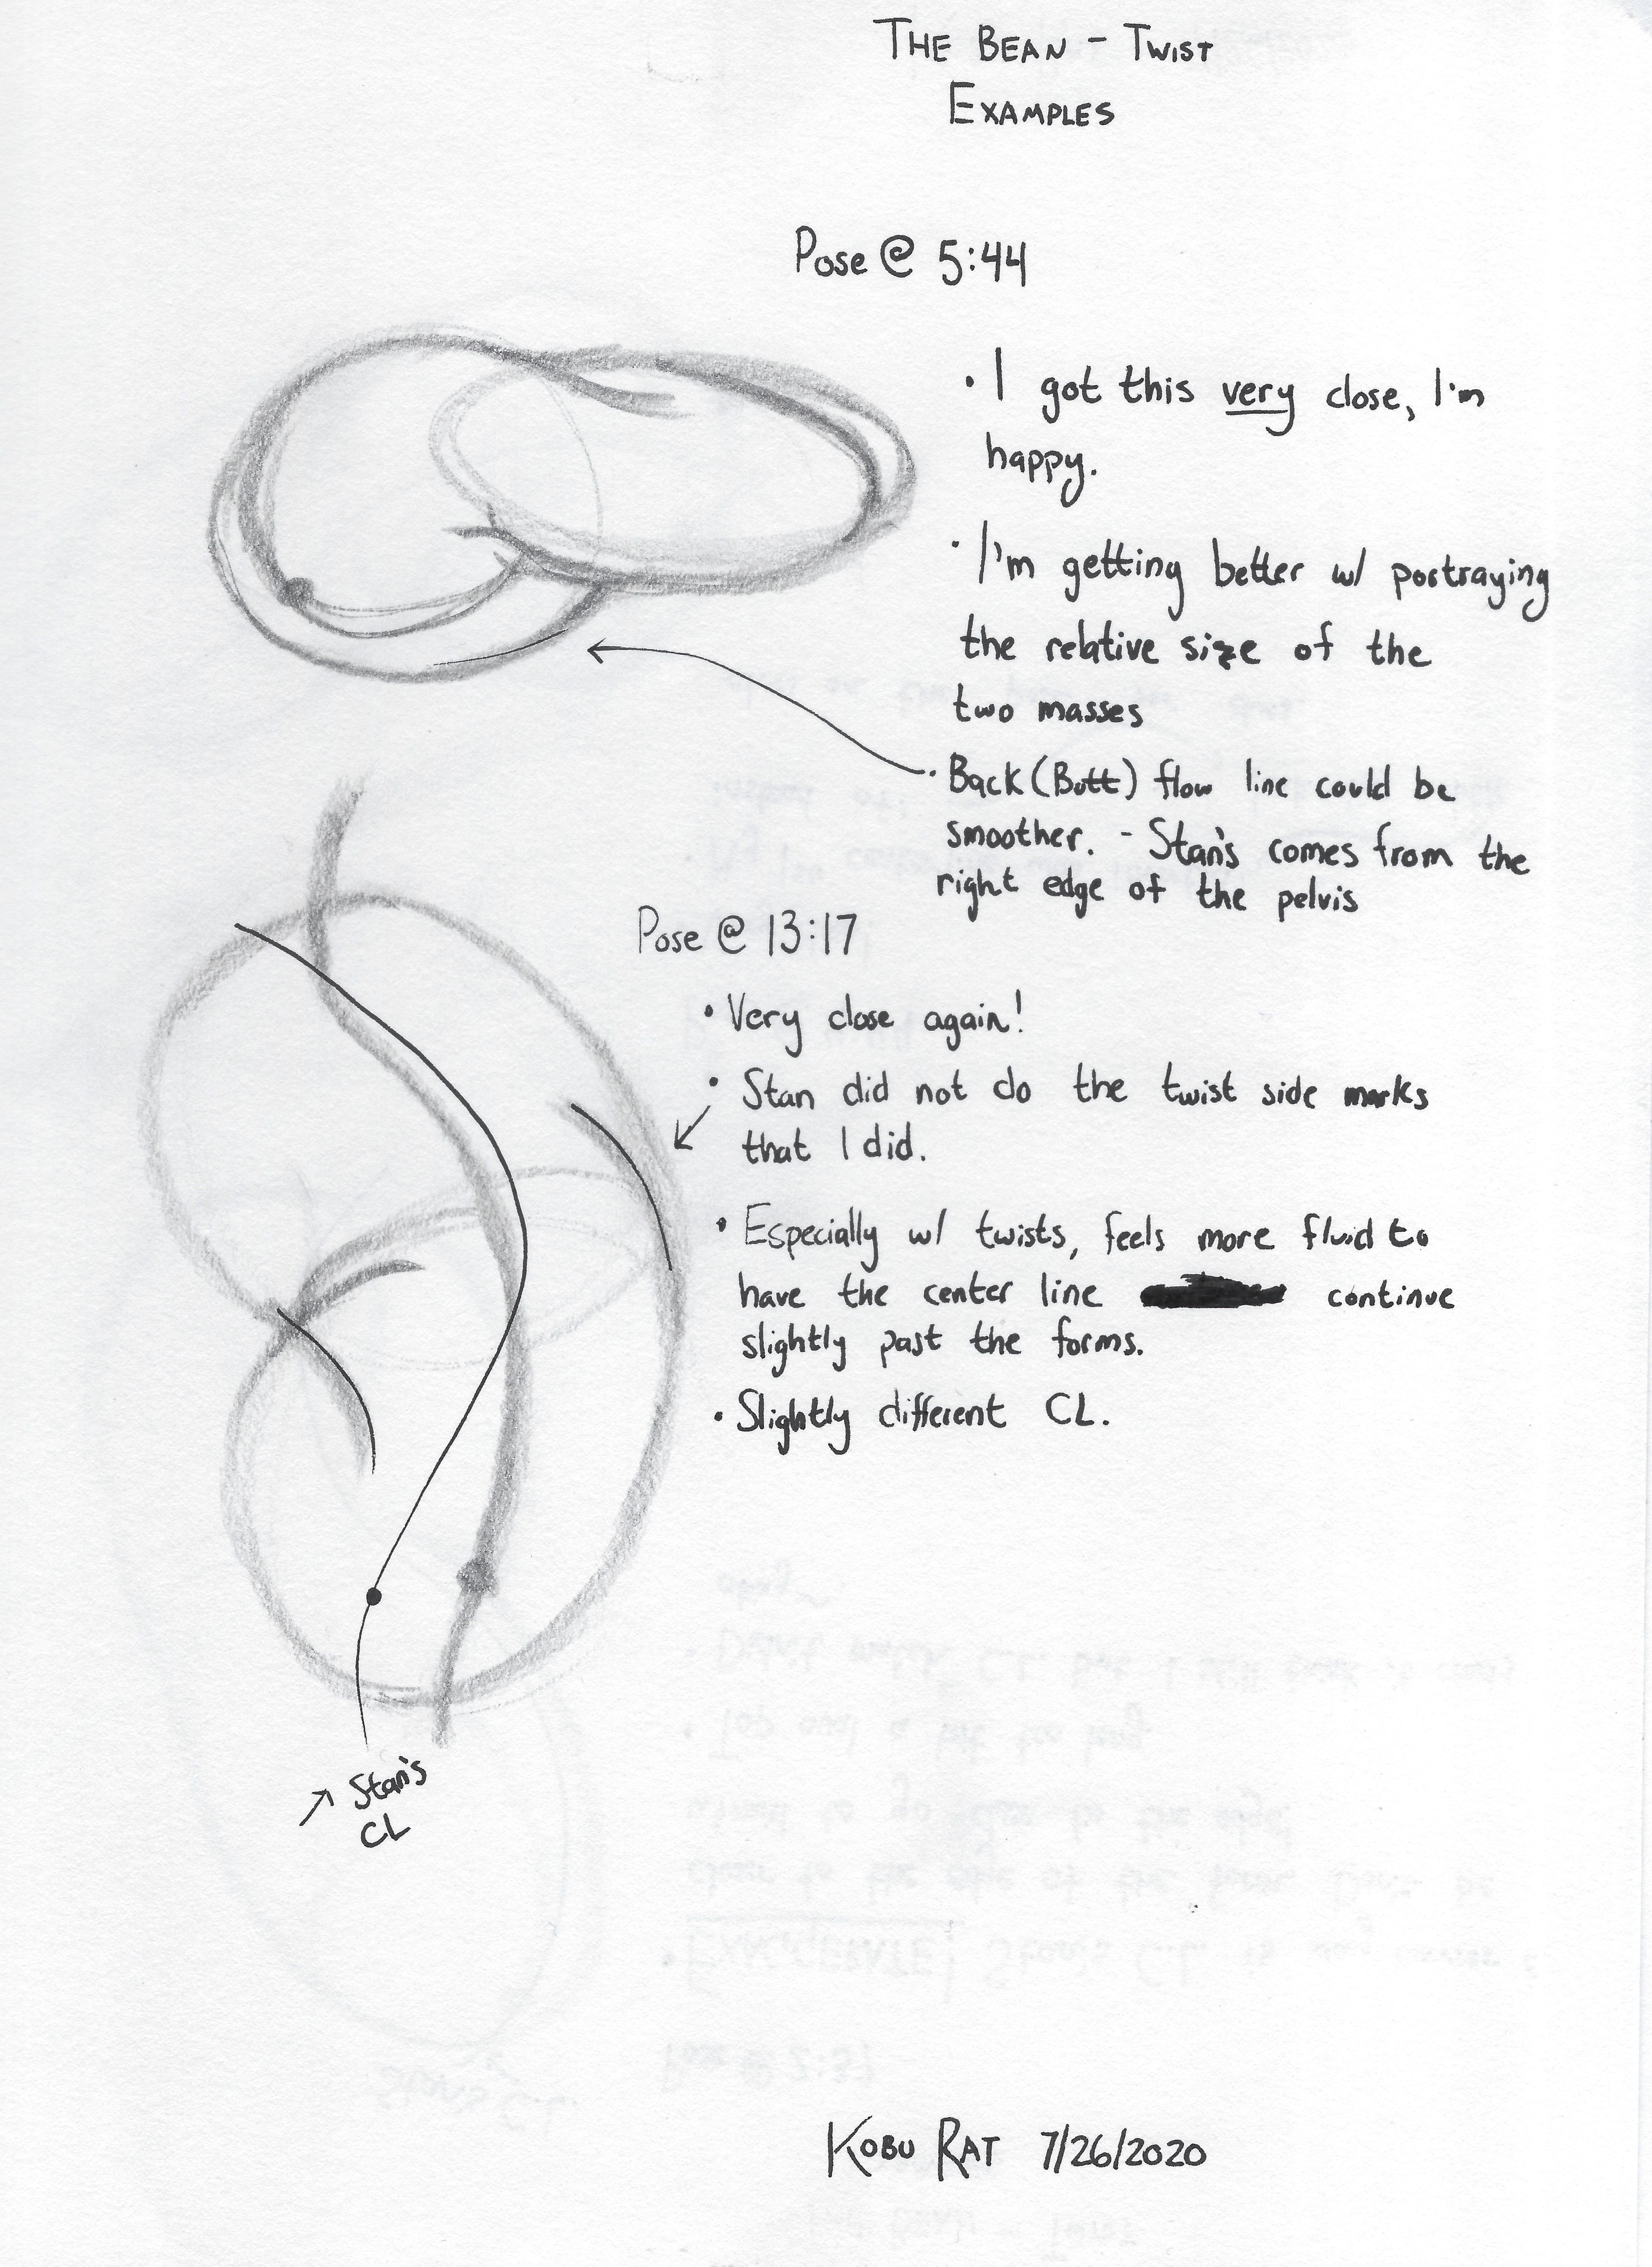 THE BEAN - TWIST
EXAMPLES
Pose @ 5:44
• I got this very close, I'm
happy.
• I'm getting better w/ portraying
the relative size of the
two masses
• Back (Butt) flow line could be
smoother. - Stan's comes from the
right edge of the pelvis
Pose @ 13:17
• Very close again!
• Stan did not do the twist side marks
that I did.
• Especially w/ twists, feels more fluid to
have the center line continue
slightly past the forms.
• Slightly different CL.
Stan's
CL
KOBU RAT 7/26/2020